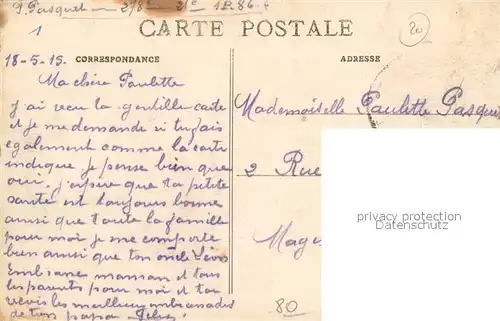 P. Pasquet
CARTE POSTALE
20
1
18-5-15. CORRESPONDANCE
ADRESSE
Ma chère Paulette
J'ai reçu ta gentille carte
et je me demande si tu fais
egalement comme la carte
indique je pense bien que
oui. j'espere que ta petite
santé est toujours bonne
ainsi que toute la famille
pour moi je me comporte
bien ainsi que ton oncle Léon
Embrasse maman et tous
les parents pour moi et tu
reçois les meilleures embrassades
de ton papa
Mademoiselle Paulette Pasquet
2 Rue
privacy protection
Datenschutz
80